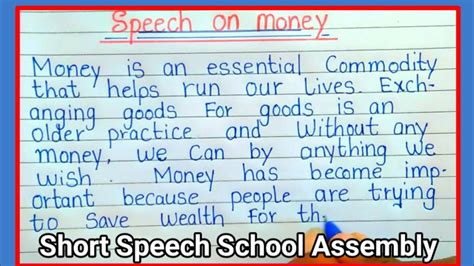 Speech on money
Money is an essential Commodity
that helps run our Lives. Exch-
anging goods For goods is an
older practice and Without any
money, we Can by anything We
wish. Money has become imp-
ortant because people are trying
to Save wealth For th
Short Speech School Assembly